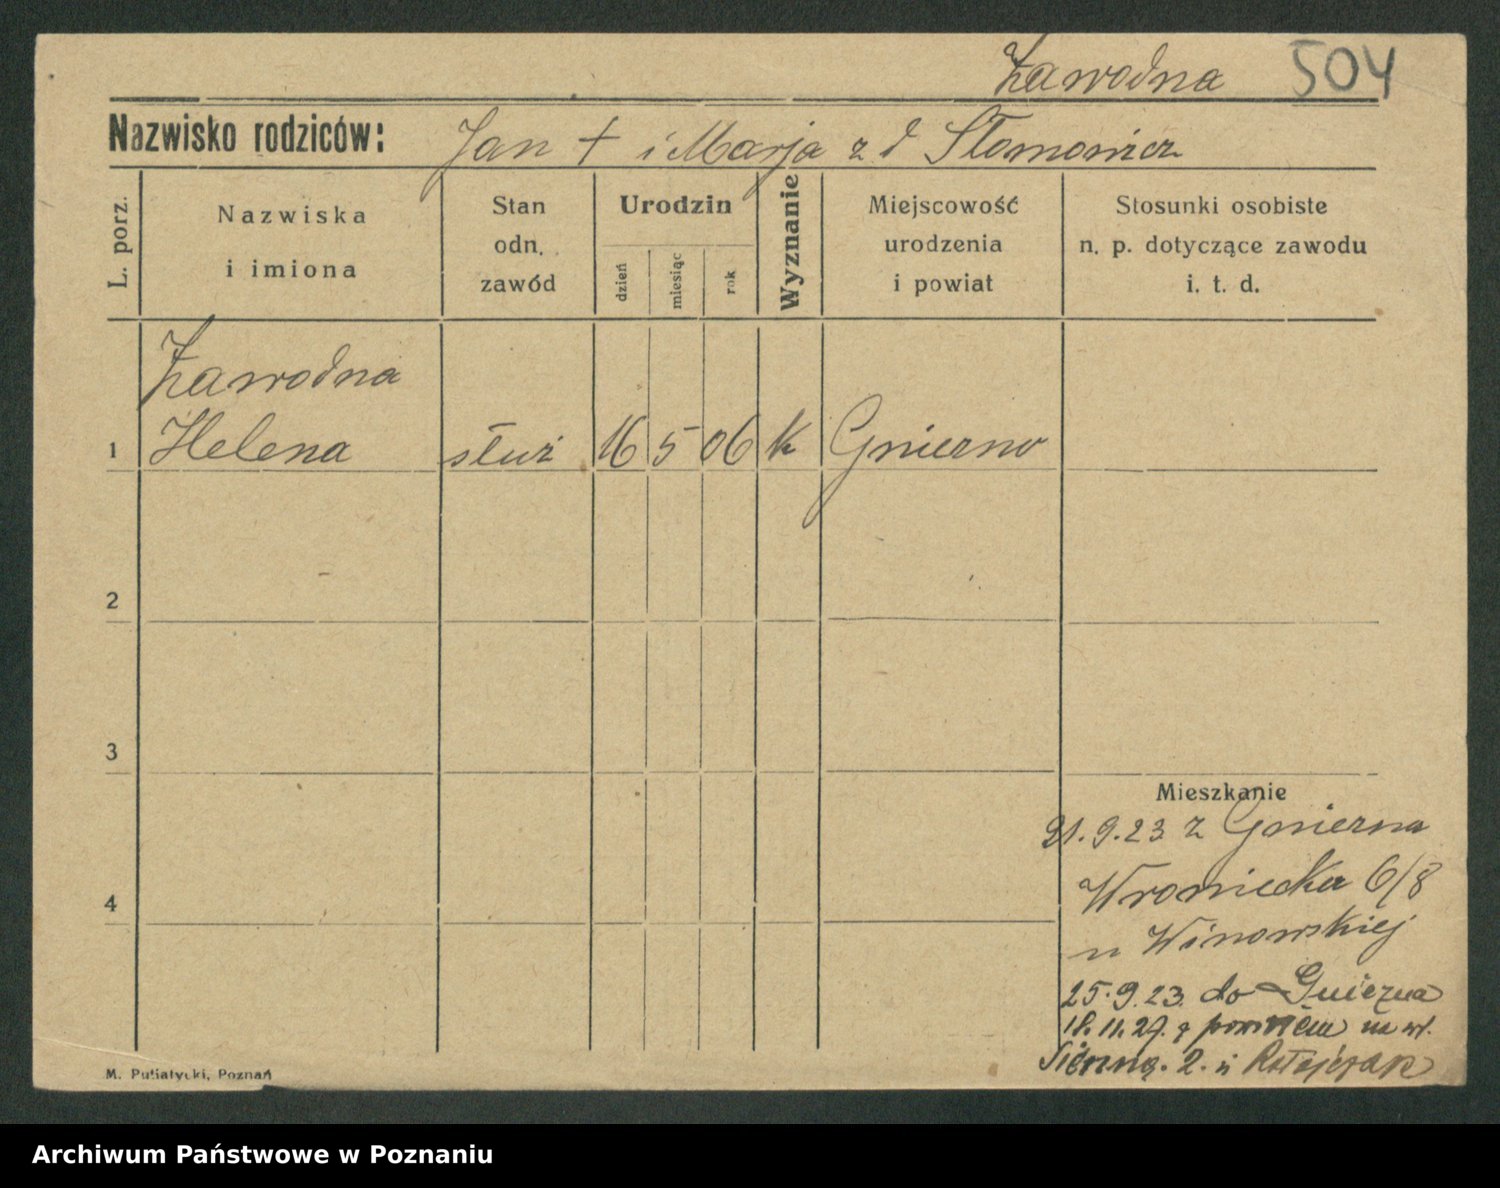 Zawodna 504
Nazwisko rodziców: Jan † i Marja z d Słomowicz
L. porz.
Nazwiska i imiona
Stan odn. zawód
Urodzin
dzień
miesiąc
rok
Wyznanie
Miejscowość urodzenia i powiat
Stosunki osobiste n. p. dotyczące zawodu i. t. d.
Zawodna
1 Helena służ 16 5 06 k Gniezno
2
3
Mieszkanie
21.9.23 z Gniezna
Wroniecka 6/8
4
u Winowskiej
25.9.23. do Gniezna
18.11.29. z powrotem na wł.
Sienną. 2. u Ratajczak
M. Putiatycki, Poznań
Archiwum Państwowe w Poznaniu